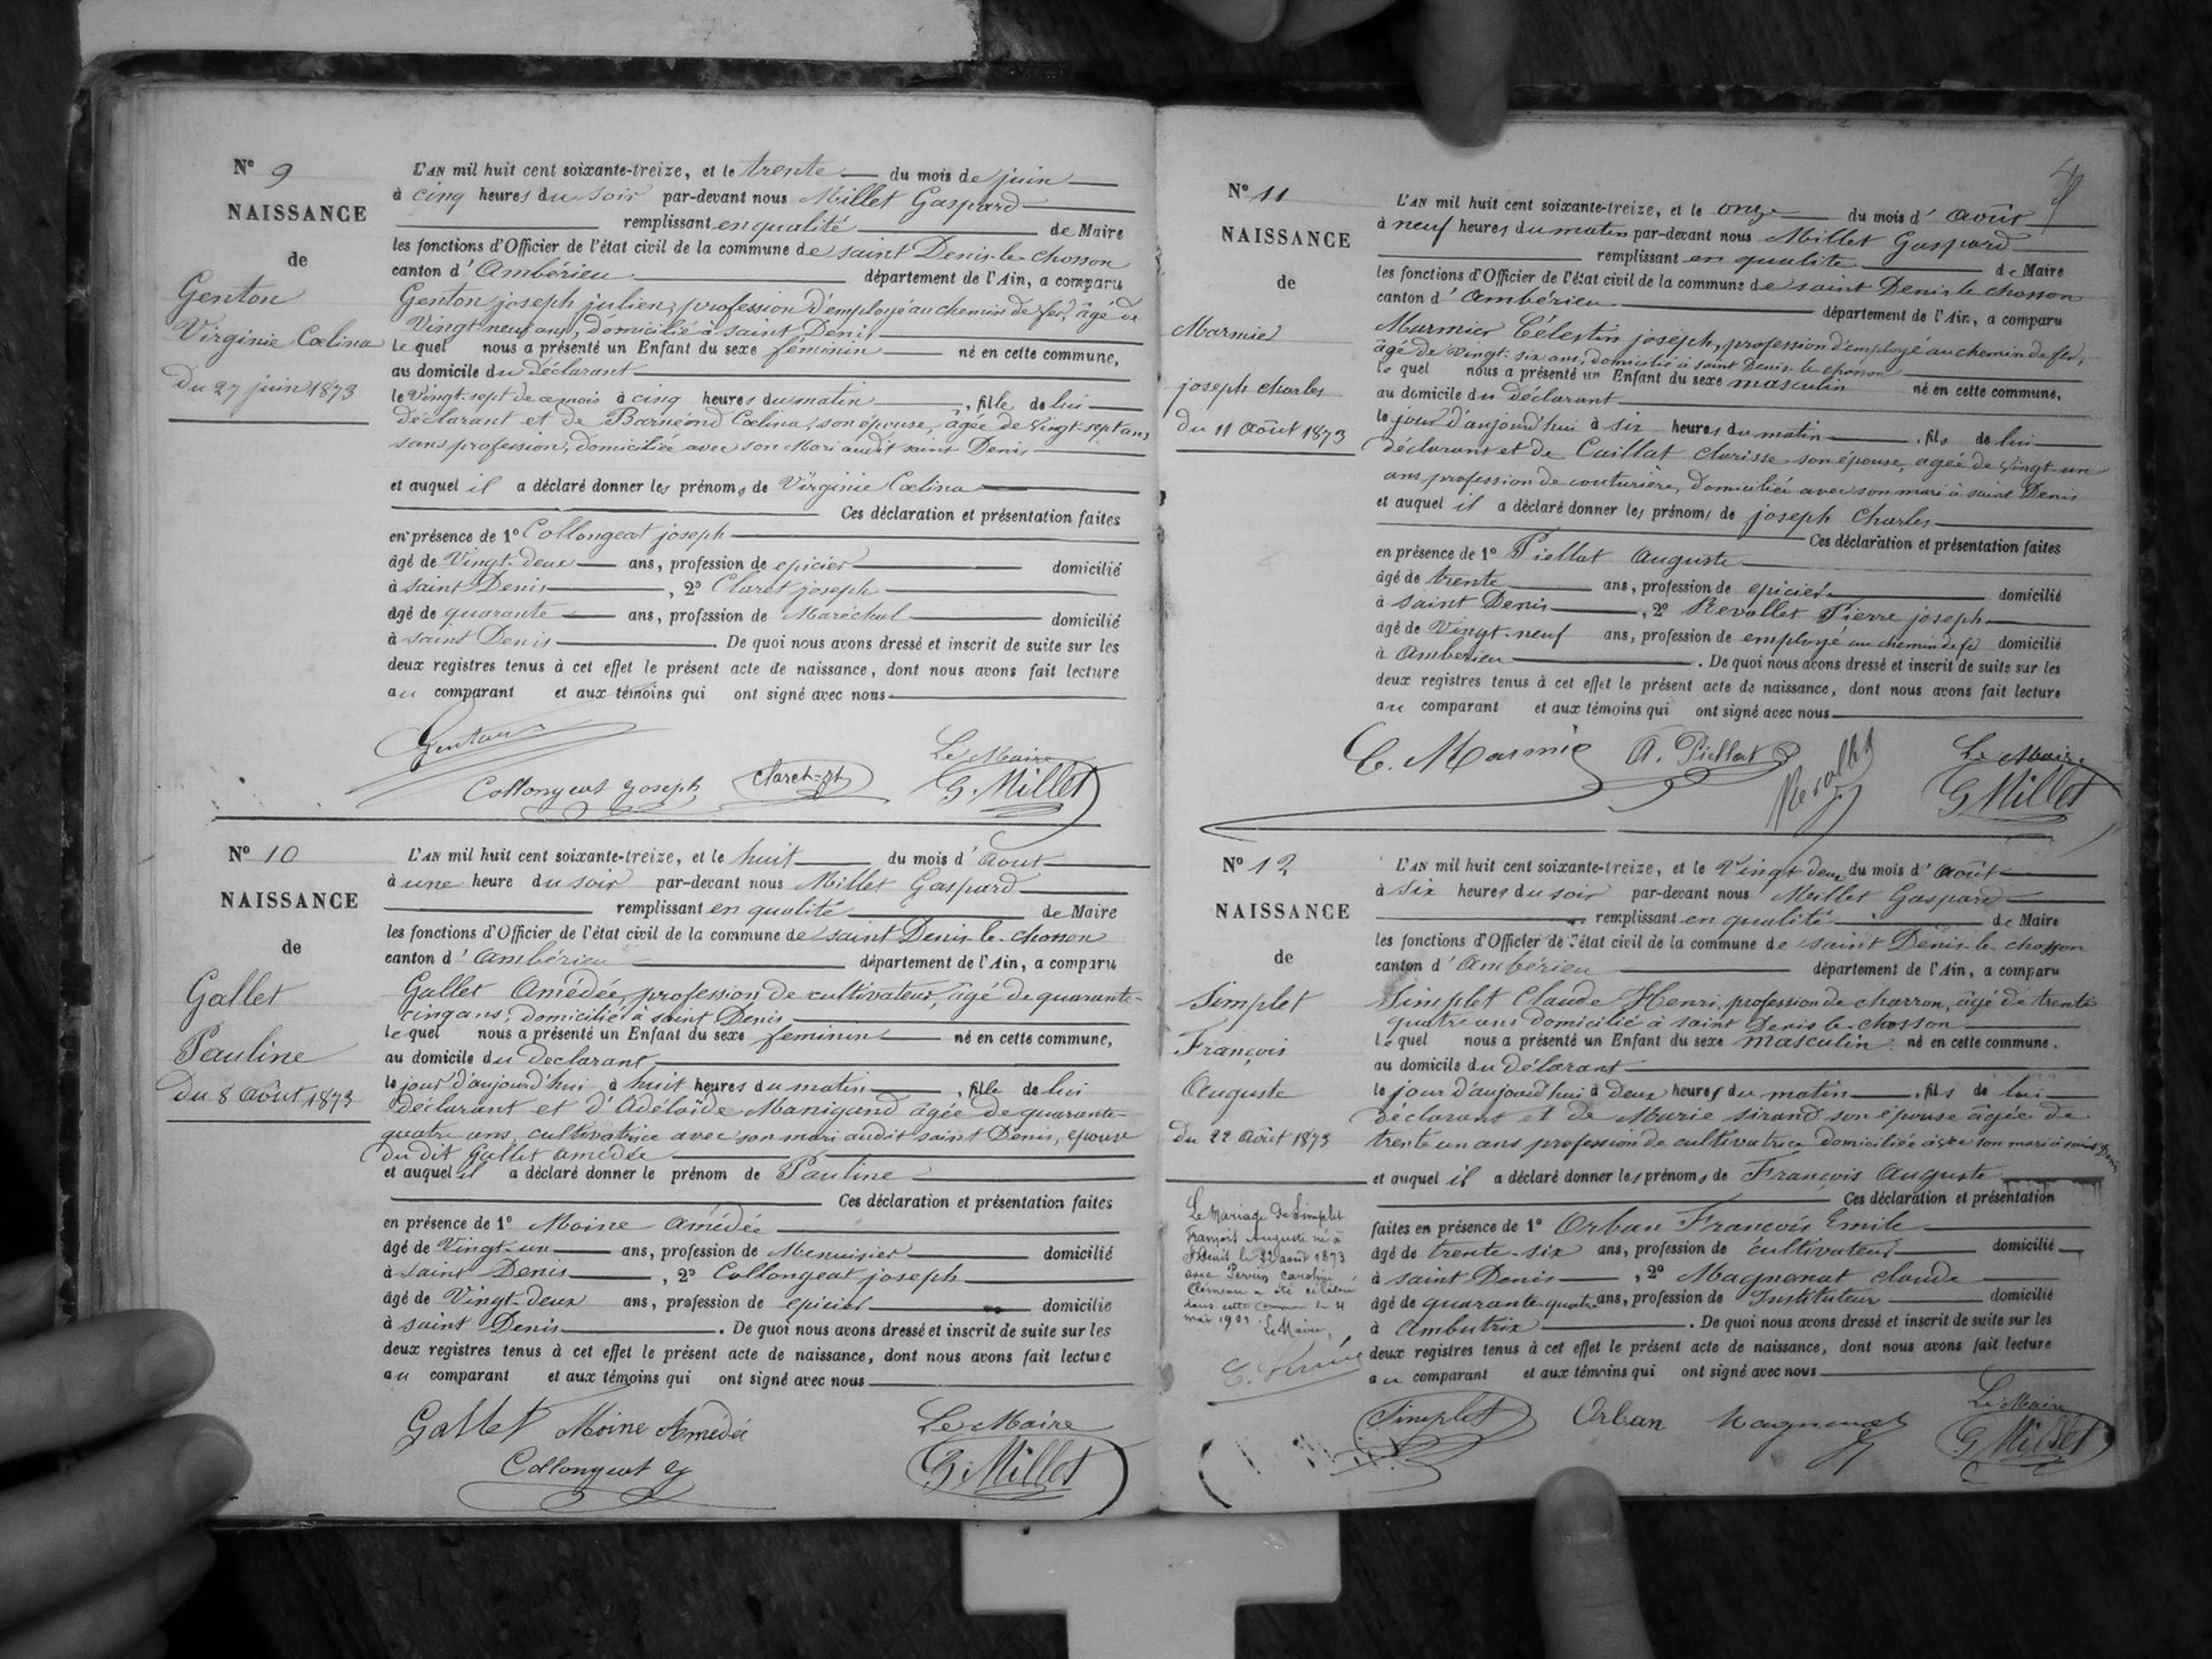 N° 9
NAISSANCE
de
Genton
Virginie Cœlina
Du 27 juin 1873
L'AN mil huit cent soixante-treize, et le trente du mois de juin
à cinq heures du soir par-devant nous Millet Gaspard
remplissant en qualité de Maire
les fonctions d'Officier de l'état civil de la commune de saint Denis-le-chosson
canton d'Ambérieu département de l'Ain, a comparu
Genton joseph julien, profession d'employé au chemin de fer, âgé de
Vingt-neuf ans, domicilié à saint Denis
le quel nous a présenté un Enfant du sexe féminin né en cette commune,
au domicile du déclarant
le Vingt-sept de ce mois à cinq heures du matin, fille de lui
déclarant et de Barnéond Cœlina, son épouse, âgée de Vingt-sept ans
sans profession, domiciliée avec son Mari audit saint Denis
et auquel il a déclaré donner les prénoms de Virginie Cœlina
Ces déclaration et présentation faites
en présence de 1° Collongeat joseph
âgé de Vingt-deux ans, profession de epicier domicilié
à saint Denis, 2° Claret joseph
âgé de quarante ans, profession de Maréchal domicilié
à saint Denis. De quoi nous avons dressé et inscrit de suite sur les
deux registres tenus à cet effet le présent acte de naissance, dont nous avons fait lecture
au comparant et aux témoins qui ont signé avec nous
Genton
Le Maire
Collongeat Joseph Claret-jh G. Millet
N° 10
NAISSANCE
de
Gallet
Pauline
Du 8 Août 1873
L'AN mil huit cent soixante-treize, et le huit du mois d'Aout
à une heure du soir par-devant nous Millet Gaspard
remplissant en qualité de Maire
les fonctions d'Officier de l'état civil de la commune de saint Denis-le-chosson
canton d'Ambérieu département de l'Ain, a comparu
Gallet Amédée, profession de cultivateur, âgé de quarante-
cinq ans, domicilié à saint Denis
le quel nous a présenté un Enfant du sexe feminin né en cette commune,
au domicile du declarant
le jour d'aujourd'hui à huit heures du matin, fille de lui
déclarant et d'Adélaïde Manigand âgée de quarante-
quatre ans, cultivatrice avec son mari audit saint Denis, epouse
du dit Gallet amédée
et auquel il a déclaré donner le prénom de Pauline
Ces déclaration et présentation faites
en présence de 1° Moine Amédée
âgé de Vingt-un ans, profession de Menuisier domicilié
à saint Denis, 2° Collongeat joseph
âgé de Vingt-deux ans, profession de epicier domicilié
à saint Denis. De quoi nous avons dressé et inscrit de suite sur les
deux registres tenus à cet effet le présent acte de naissance, dont nous avons fait lecture
au comparant et aux témoins qui ont signé avec nous
Gallet Moine Amédée Le Maire
Collongeat G. Millet
N° 11
NAISSANCE
de
Marmier
joseph charles
du 11 Août 1873
L'AN mil huit cent soixante-treize, et le onze du mois d'Août
à neuf heures du matin par-devant nous Millet Gaspard
remplissant en qualité de Maire
les fonctions d'Officier de l'état civil de la commune de saint Denis-le chosson
canton d'Ambérieu département de l'Ain, a comparu
Marmier Célestin joseph, profession d'employé au chemin de fer,
âgé de vingt-six ans, domicilié à saint Denis-le chosson
le quel nous a présenté un Enfant du sexe masculin né en cette commune,
au domicile du déclarant
le jour d'aujourd'hui à six heures du matin, fils de lui
déclarant et de Caillat Clarisse son épouse, agée de Vingt-un
ans profession de couturière, domiciliée avec son mari à saint Denis
et auquel il a déclaré donner les prénoms de joseph Charles
Ces déclaration et présentation faites
en présence de 1° Piellat Auguste
âgé de trente ans, profession de epicier domicilié
à saint Denis, 2° Revollet Pierre joseph
âgé de Vingt-neuf ans, profession de employé au chemin de fer domicilié
à Amberieu. De quoi nous avons dressé et inscrit de suite sur les
deux registres tenus à cet effet le présent acte de naissance, dont nous avons fait lecture
au comparant et aux témoins qui ont signé avec nous
C. Marmier A. Piellat Revollet Le Maire
G Millet
N° 12
NAISSANCE
de
Simplet
François
Auguste
du 22 Août 1873
L'AN mil huit cent soixante-treize, et le Vingt deux du mois d'Août
à six heures du soir par-devant nous Millet Gaspard
remplissant en qualité de Maire
les fonctions d'Officier de l'état civil de la commune de saint Denis-le chosson
canton d'Ambérieu département de l'Ain, a comparu
Simplet Claude Henri, profession de charron, âgé de trente
quatre ans domicilié à saint Denis le-chosson
le quel nous a présenté un Enfant du sexe masculin né en cette commune,
au domicile du délarant
le jour d'aujourd'hui à Deux heures du matin, fils de lui
déclarant et de Marie sirand son épouse âgée de
trente un ans, profession de cultivatrice domiciliée avec son mari à saint Denis
et auquel il a déclaré donner les prénoms de François Auguste
Ces déclaration et présentation
faites en présence de 1° Orban François Emile
âgé de trente-six ans, profession de cultivateur domicilié
à saint Denis, 2° Magnenat claude
âgé de quarante quatre ans, profession de Instituteur domicilié
à Ambutrix. De quoi nous avons dressé et inscrit de suite sur les
deux registres tenus à cet effet le présent acte de naissance, dont nous avons fait lecture
au comparant et aux témoins qui ont signé avec nous
Le Mariage de Simplet
François Auguste né à
St Denis le 22 août 1873
avec
a été célébré
dans cette commune le 4
mai
Le Maire,
Simplet Orban Magnenat Le Maire
G Millet